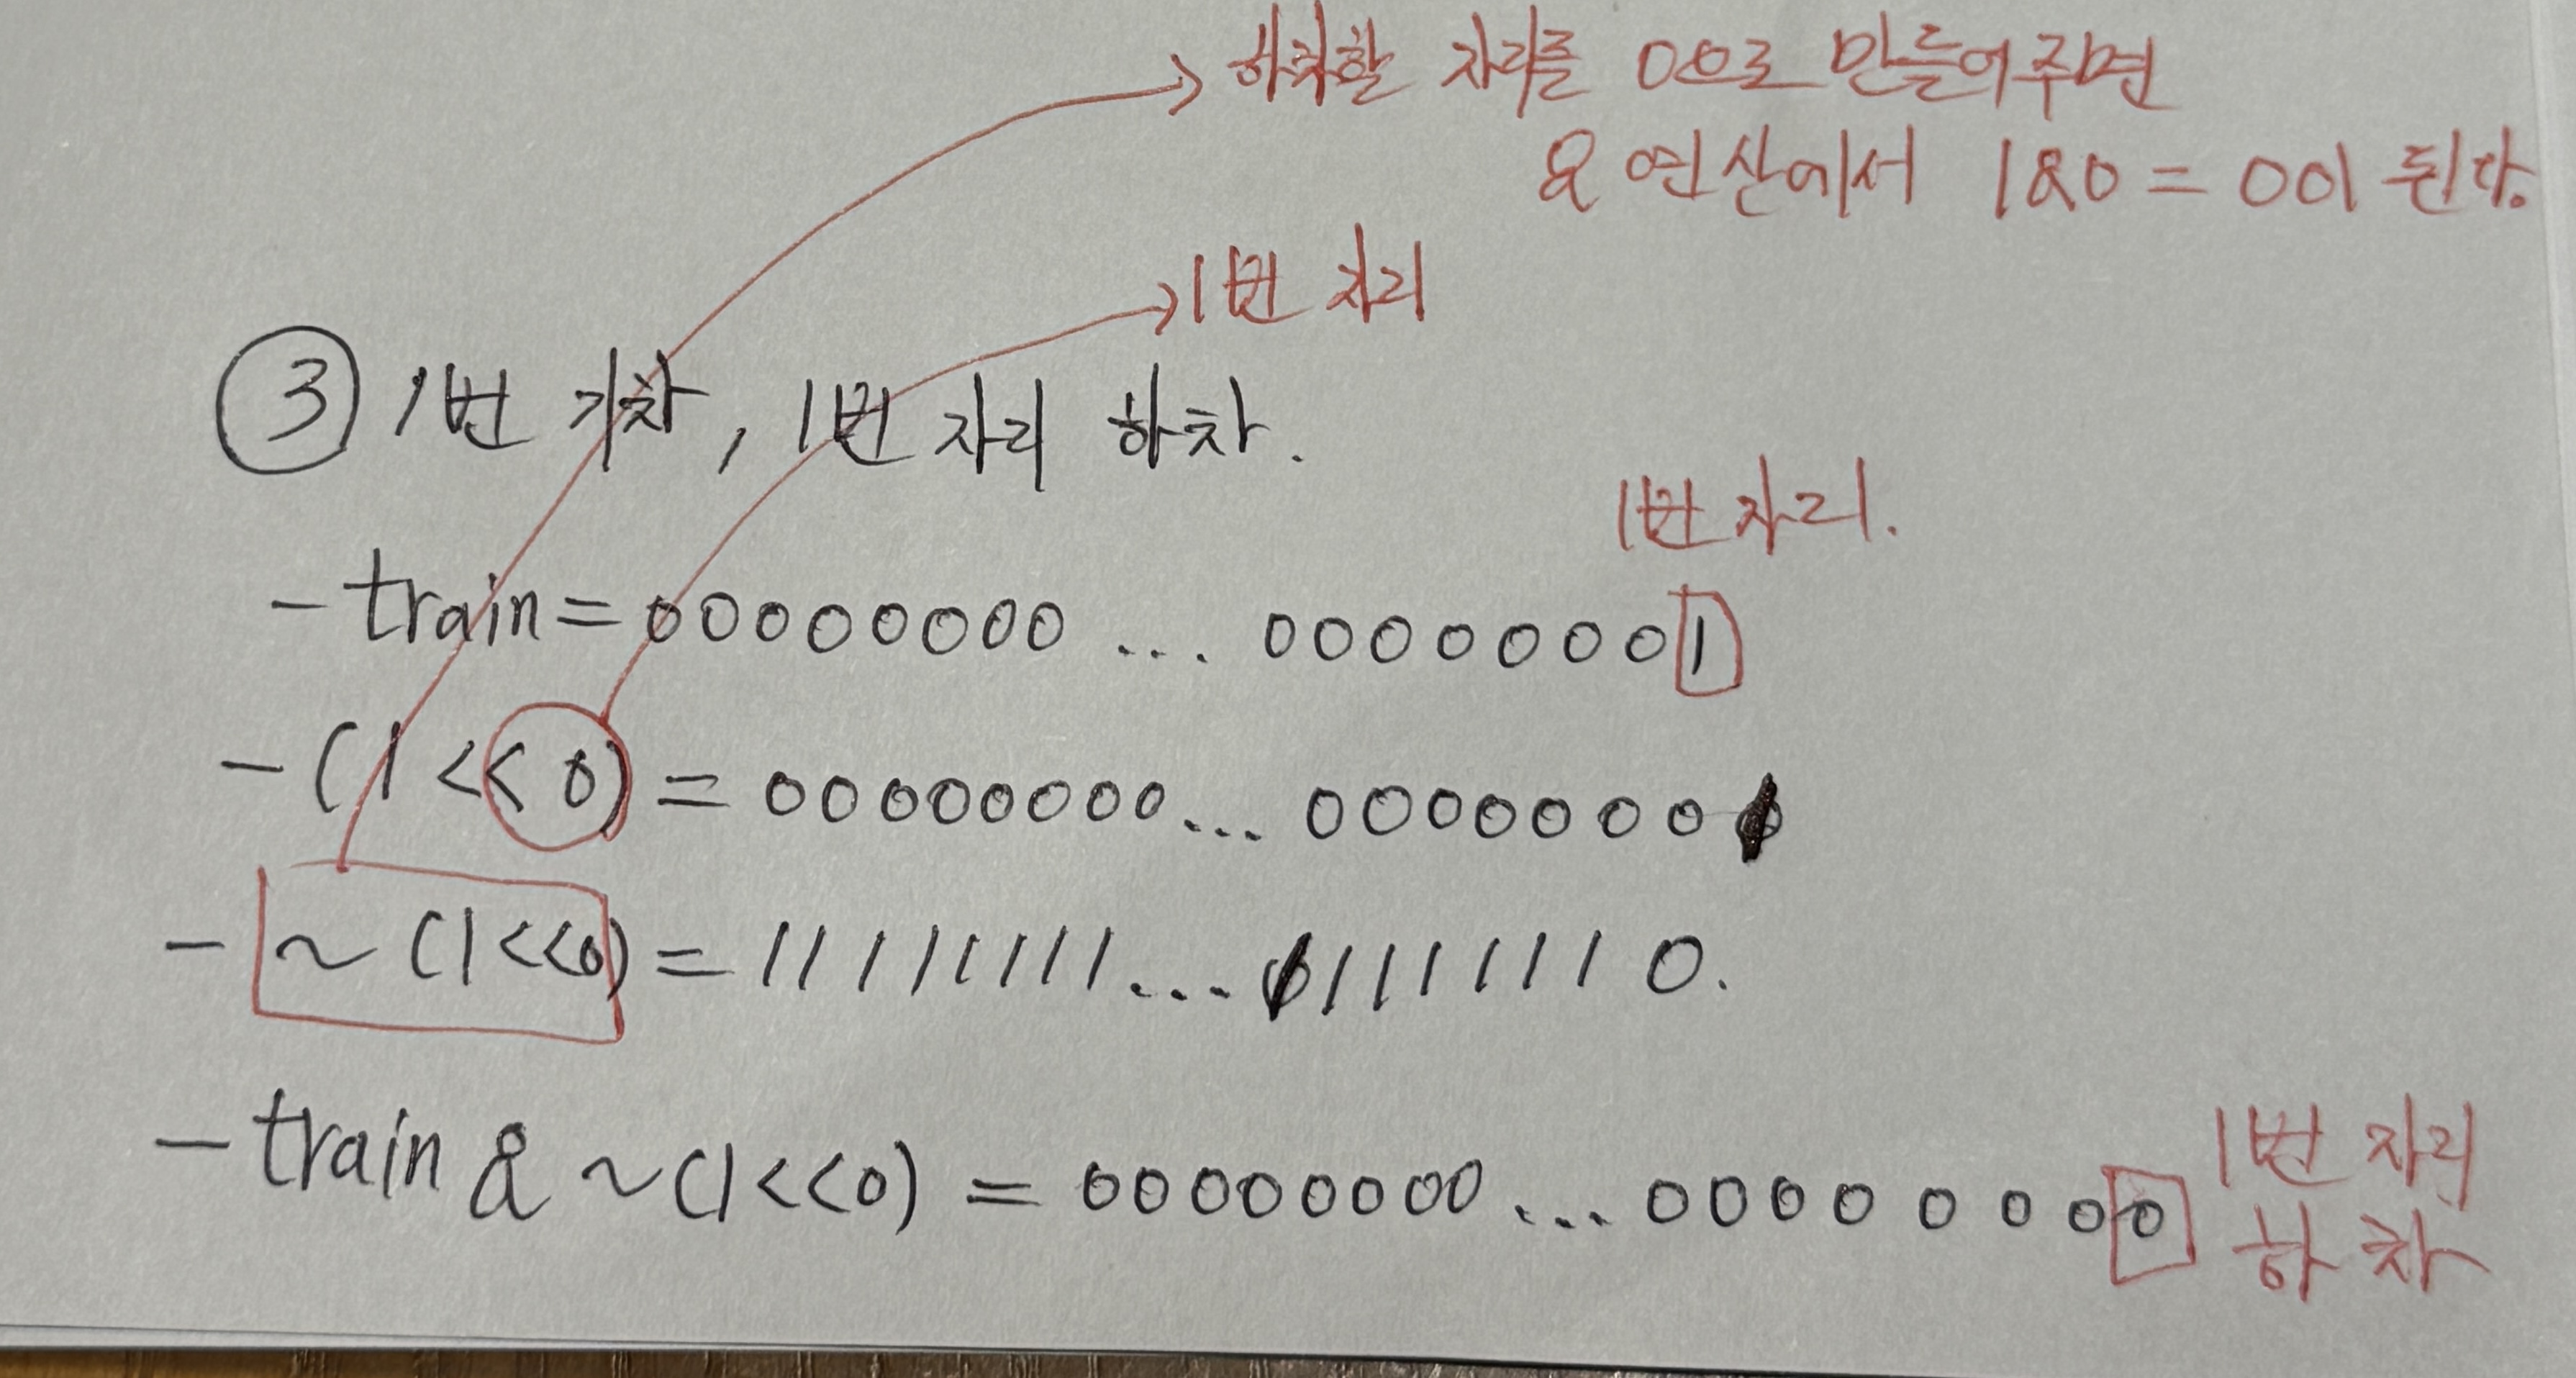 하차할 자리를 0으로 만들어주면
& 연산에서 1&0 = 0이 된다.
1번 자리
③ 1번 기차, 1번 자리 하차.
1번 자리.
- train = 00000000 ... 00000001
- (1 << 0) = 00000000... 00000001
- ~(1<<0) = 11111111... 11111110.
- train & ~(1<<0) = 00000000 ... 00000000
1번 자리
하차